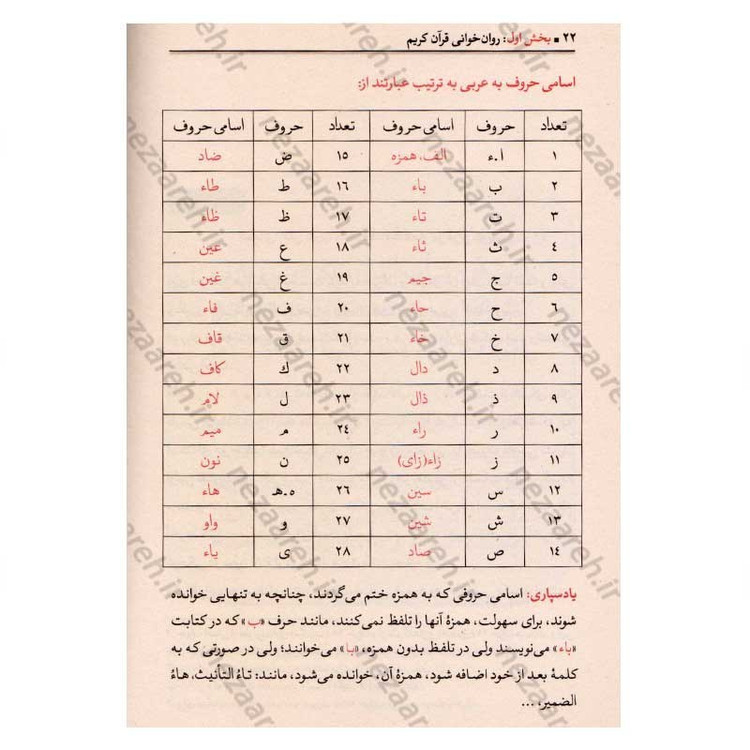 ۲۲ ■ بخش اول: روان‌خوانی قرآن کریم
اسامی حروف به عربی به ترتیب عبارتند از:
تعداد حروف اسامی حروف تعداد حروف اسامی حروف
۱ ا.ء الف، همزه ۱۵ ض ضاد
۲ ب باء ۱۶ ط طاء
۳ ت تاء ۱۷ ظ ظاء
٤ ث ثاء ۱۸ ع عین
۵ ج جیم ۱۹ غ غین
٦ ح حاء ۲۰ ف فاء
۷ خ خاء ۲۱ ق قاف
۸ د دال ۲۲ ك کاف
۹ ذ ذال ۲۳ ل لام
۱۰ ر راء ۲٤ م میم
۱۱ ز زاء(زای) ۲۵ ن نون
۱۲ س سین ۲٦ ه.هـ هاء
۱۳ ش شین ۲۷ و واو
۱٤ ص صاد ۲۸ ی یاء
یادسپاری: اسامی حروفی که به همزه ختم می‌گردند، چنانچه به تنهایی خوانده
شوند، برای سهولت، همزهٔ آنها را تلفظ نمی‌کنند، مانند حرف «ب» که در کتابت
«باء» می‌نویسند ولی در تلفظ بدون همزه، «با» می‌خوانند؛ ولی در صورتی که به
کلمهٔ بعد از خود اضافه شود، همزهٔ آن، خوانده می‌شود، مانند: تاءُ التأنیث، هاءُ
الضمیر، ...
nezaareh.ir